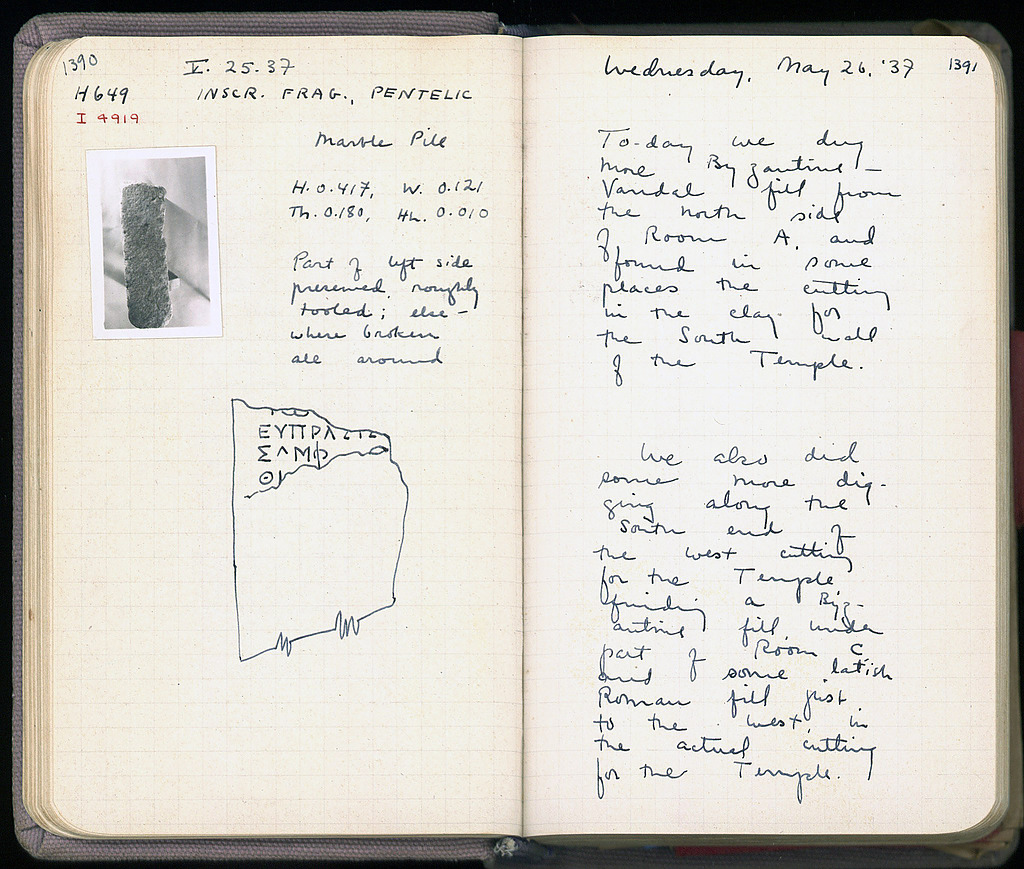 1390
V. 25.37
H649 INSCR. FRAG., PENTELIC
I 4919
Marble Pile
H. 0.417, W. 0.121
Th. 0.180, Hh. 0.010
Part of left side
preserved, roughly
tooled; else-
where broken
all around
ΕΥΠΡΑ
ΣΑΜΦ
ΘΙ
Wednesday, May 26, '37 1391
To-day we dug
more Byzantine-
Vandal fill from
the north side
of Room A, and
found in some
places the cutting
in the clay for
the South wall
of the Temple.
We also did
some more dig-
ging along the
South end of
the west cutting
for the Temple
finding a Byz-
antine fill under
part of Room C
and some latish
Roman fill just
to the west, in
the actual cutting
for the Temple.